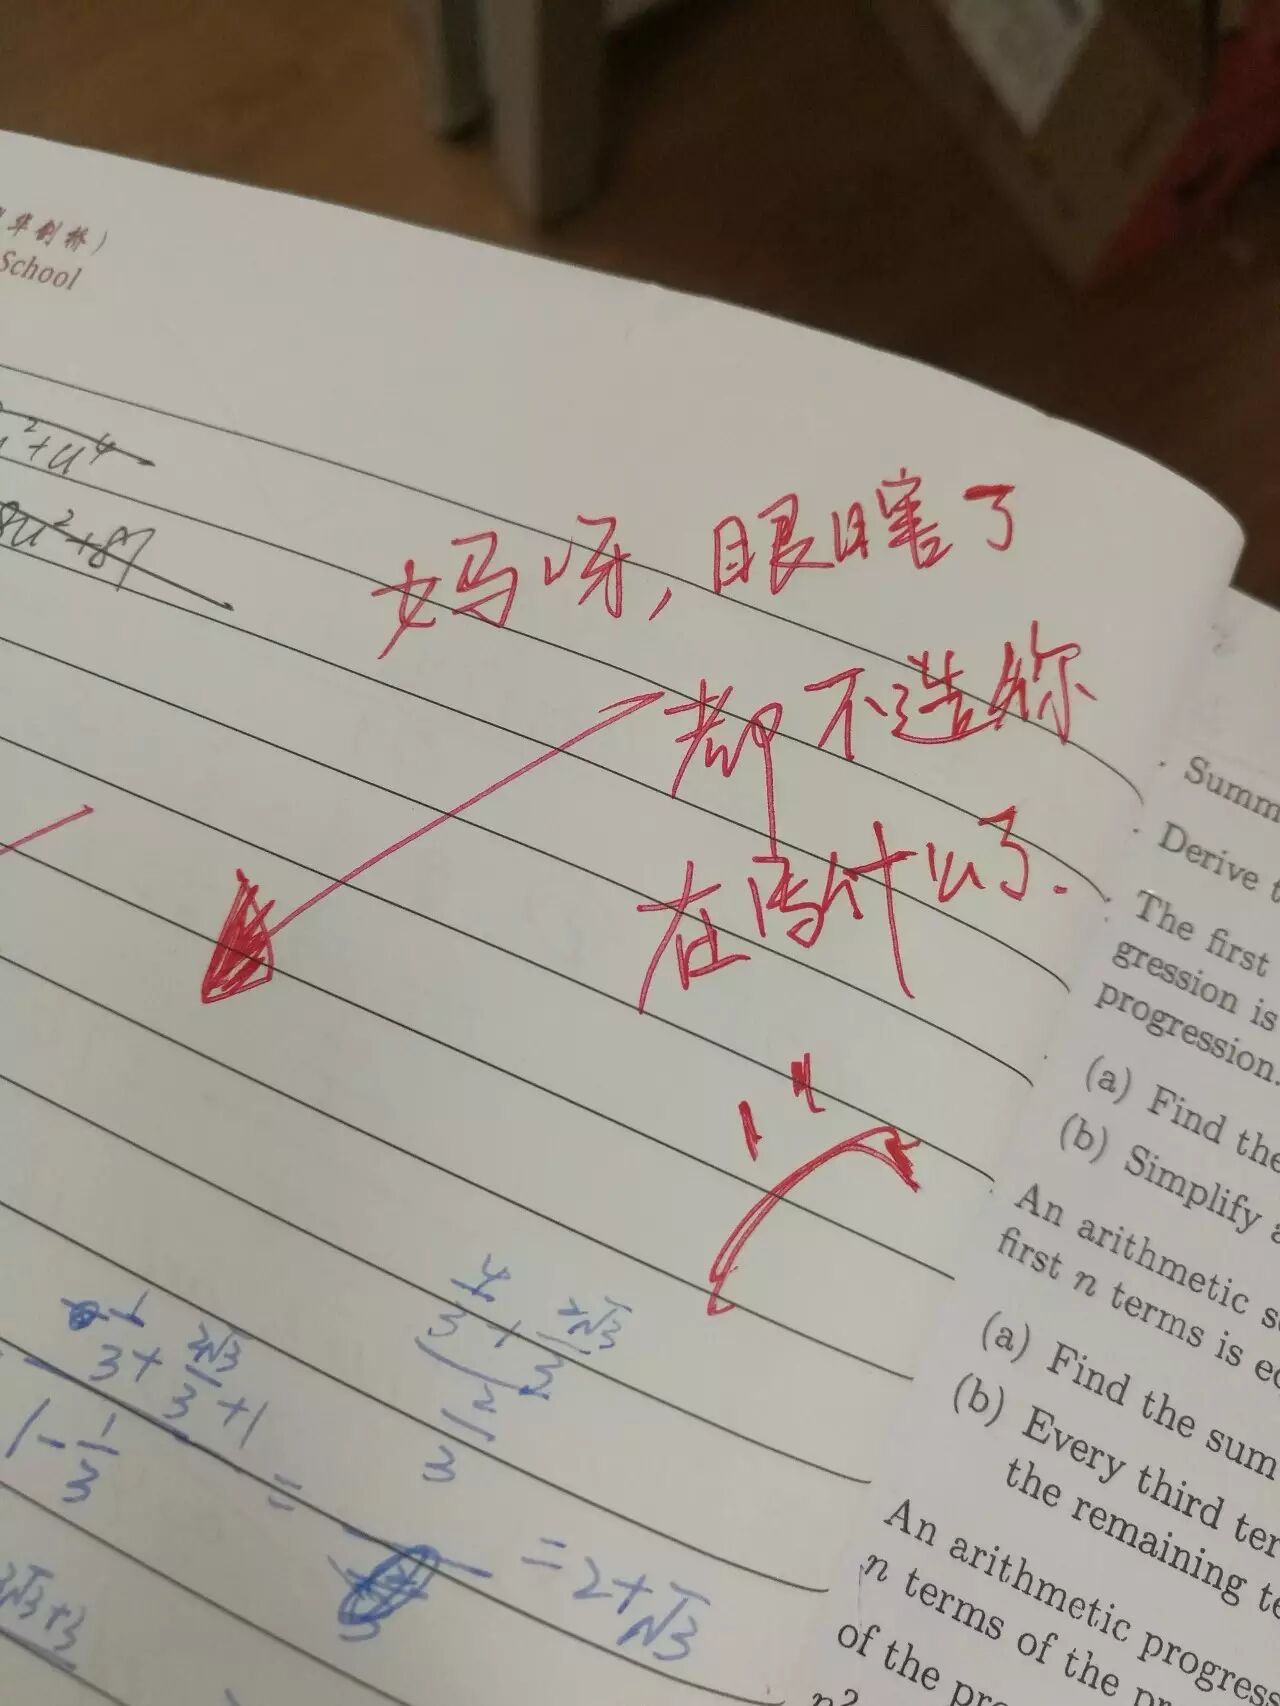 华剑桥)
School
u²+u⁴
8u²+87
妈呀,眼瞎了
都不造你
在写什么了.
1/3+2√3/3+1
1-1/3
=
4/3+2√3/3
2/3
=2+√3
2√3+3
Summ
Derive t
The first
gression is
progression.
(a) Find the
(b) Simplify a
An arithmetic s
first n terms is eq
(a) Find the sum
(b) Every third ter
the remaining te
An arithmetic progress
n terms of the pr
of the pro
n²